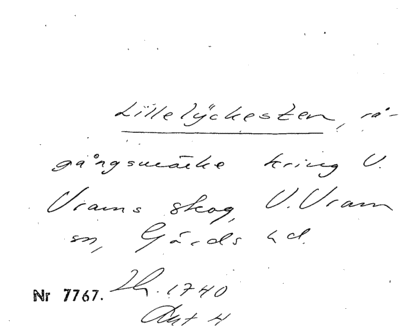 Lillelyckesten, rå-
gångsmärke kring V.
Vrams skog, V. Vram
sn, Gärds hd.
Nr 7767. Lh. 1740
Akt 4